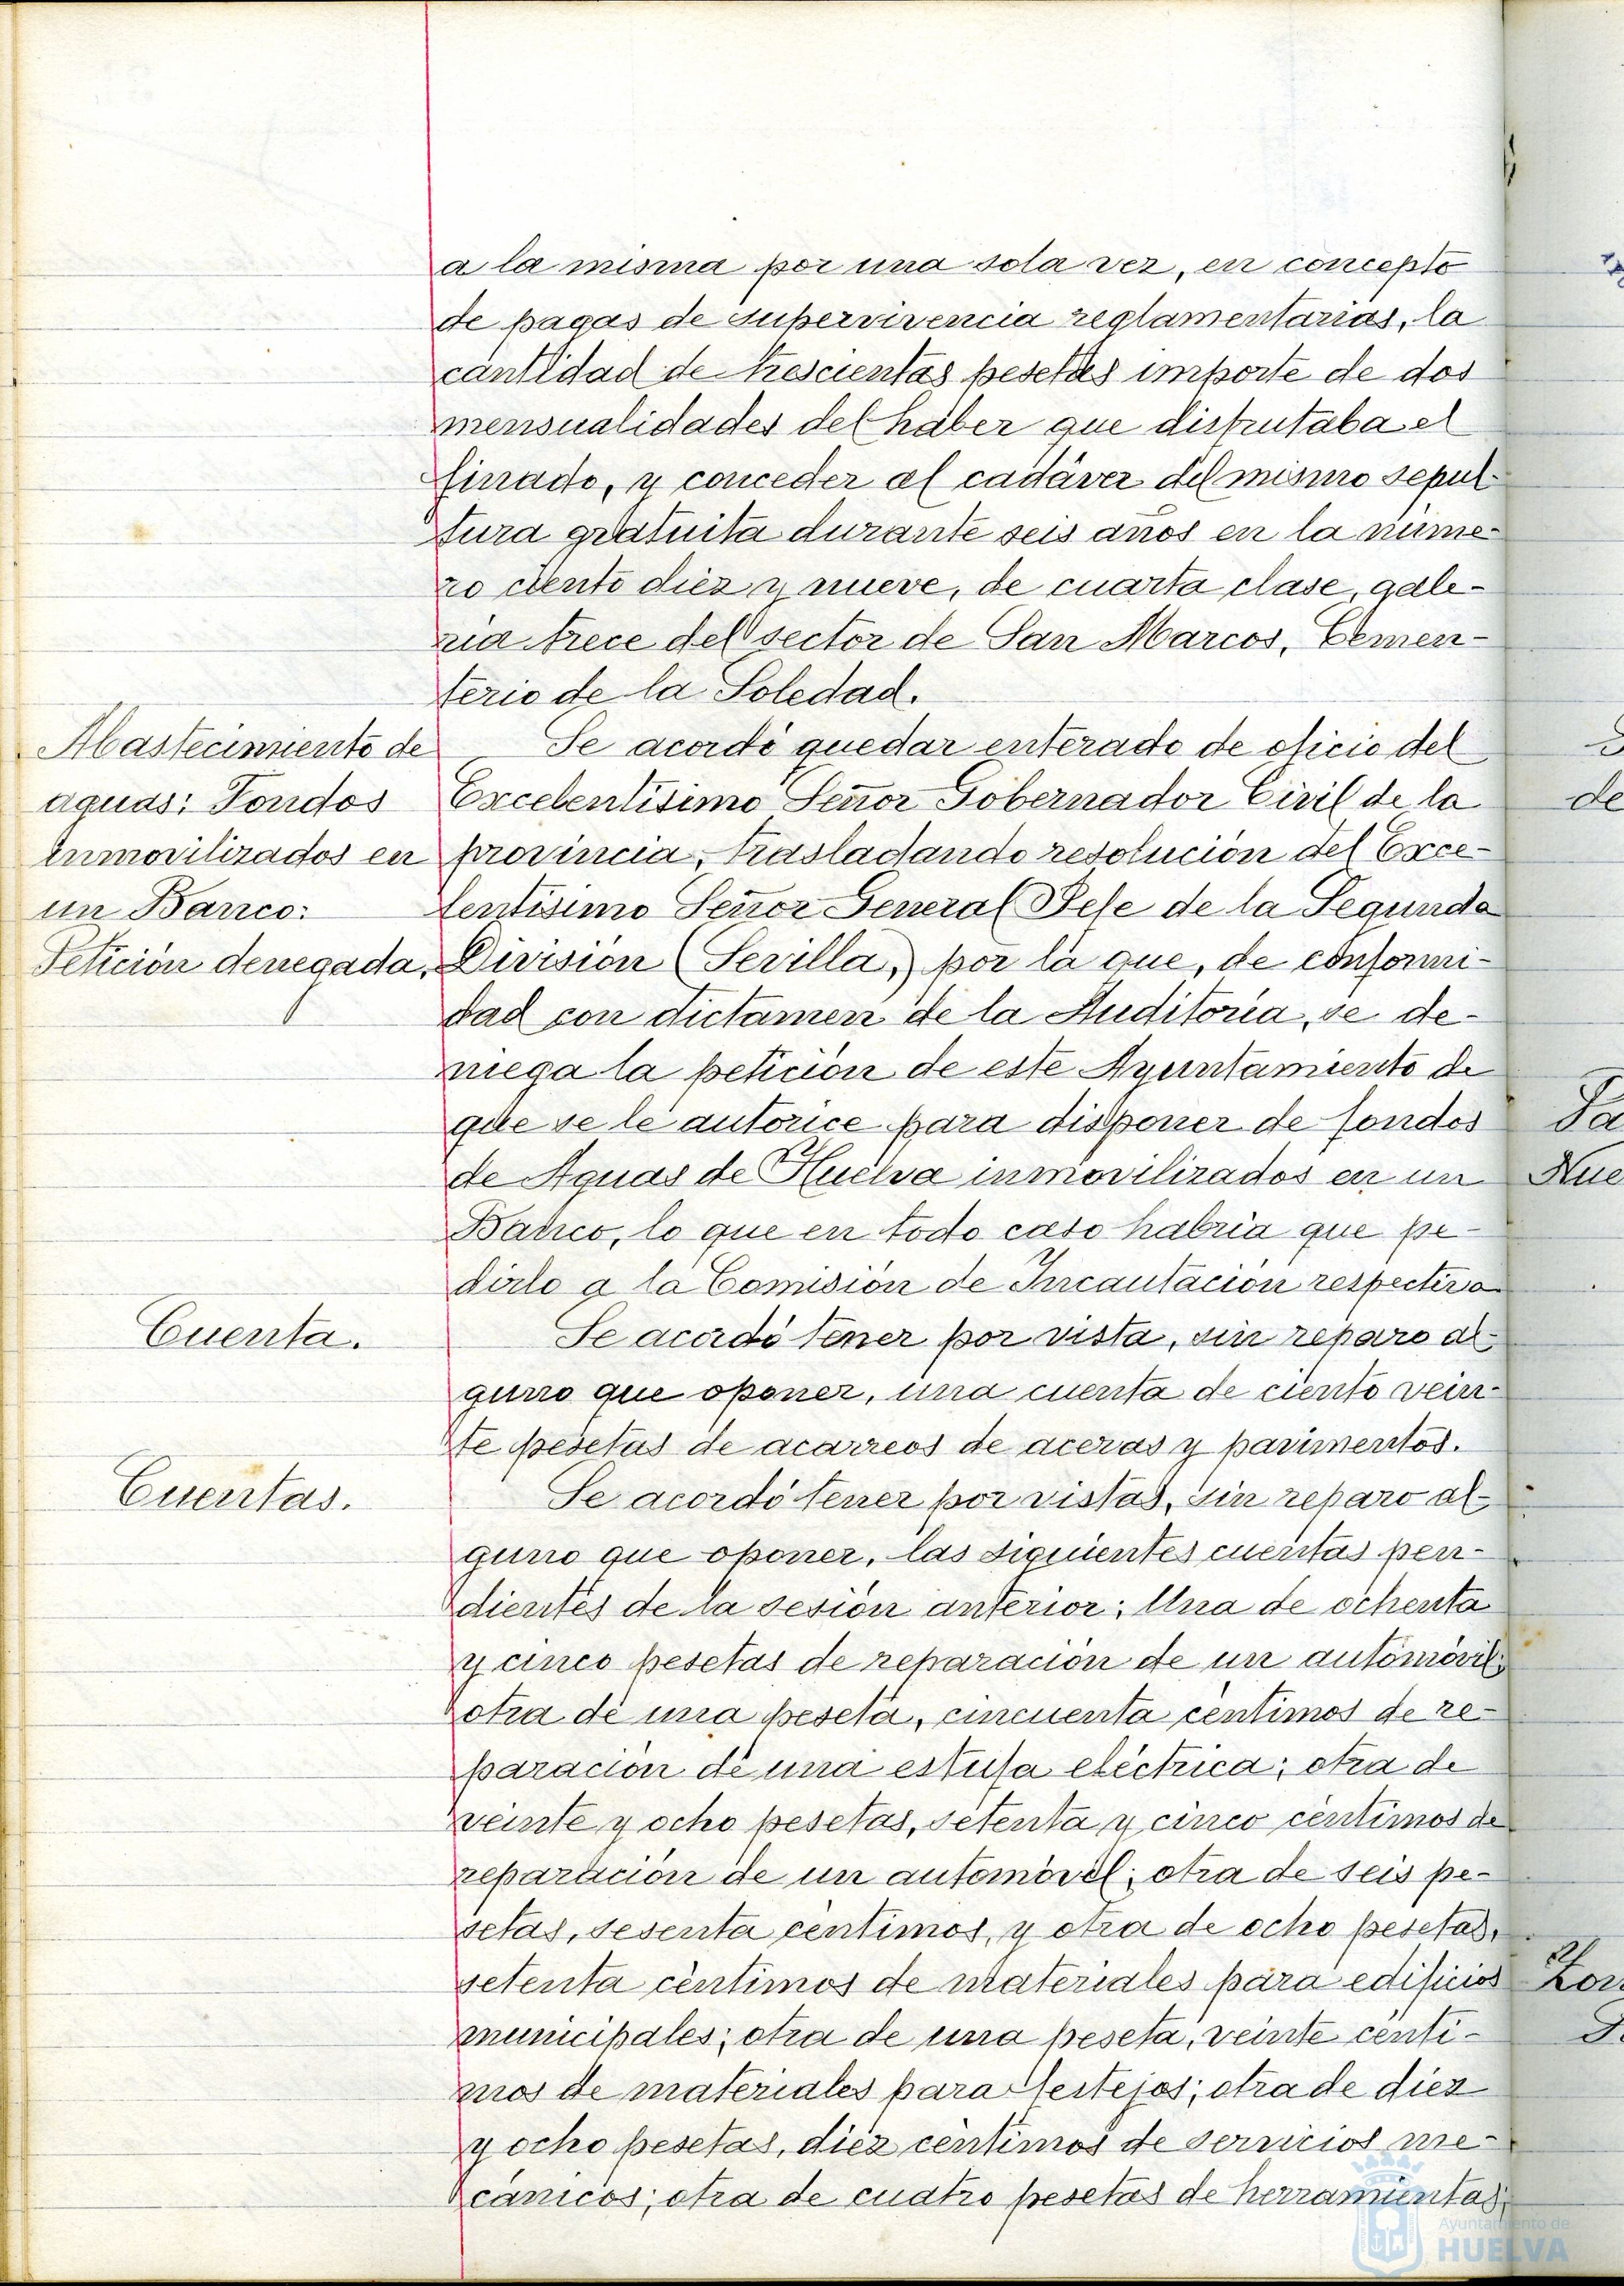 a la misma por una sola vez, en concepto
de pagas de supervivencia reglamentarias, la
cantidad de trescientas pesetas importe de dos
mensualidades del haber que disfrutaba el
finado, y conceder al cadáver del mismo sepul-
tura gratuita durante seis años en la núme-
ro ciento diez y nueve, de cuarta clase, gale-
ria trece del sector de San Marcos, Cemen-
terio de la Soledad.
Abastecimiento de
aguas: Fondos
inmovilizados en
un Banco:
Petición denegada.
Se acordó quedar enterado de oficio del
Excelentísimo Señor Gobernador Civil de la
provincia, trasladando resolución del Exce-
lentísimo Señor General Jefe de la Segunda
División (Sevilla,) por la que, de conformi-
dad con dictamen de la Auditoría, se de-
niega la petición de este Ayuntamiento de
que se le autorice para disponer de fondos
de Aguas de Huelva inmovilizados en un
Banco, lo que en todo caso habría que pe-
dirlo a la Comisión de Incautación respectiva
Cuenta.
Se acordó tener por vista, sin reparo al-
guno que oponer, una cuenta de ciento vein-
te pesetas de acarreos de aceras y pavimentos.
Cuentas.
Se acordó tener por vistas, sin reparo al-
guno que oponer, las siguientes cuentas pen-
dientes de la sesión anterior: Una de ochenta
y cinco pesetas de reparación de un automóvil;
otra de una peseta, cincuenta céntimos de re-
paración de una estufa eléctrica; otra de
veinte y ocho pesetas, setenta y cinco céntimos de
reparación de un automóvil; otra de seis pe-
setas, sesenta céntimos, y otra de ocho pesetas,
setenta céntimos de materiales para edificios
municipales; otra de una peseta, veinte cénti-
mos de materiales para festejos; otra de diez
y ocho pesetas, diez céntimos de servicios me-
cánicos; otra de cuatro pesetas de herramientas;
de
Ayuntamiento de
HUELVA